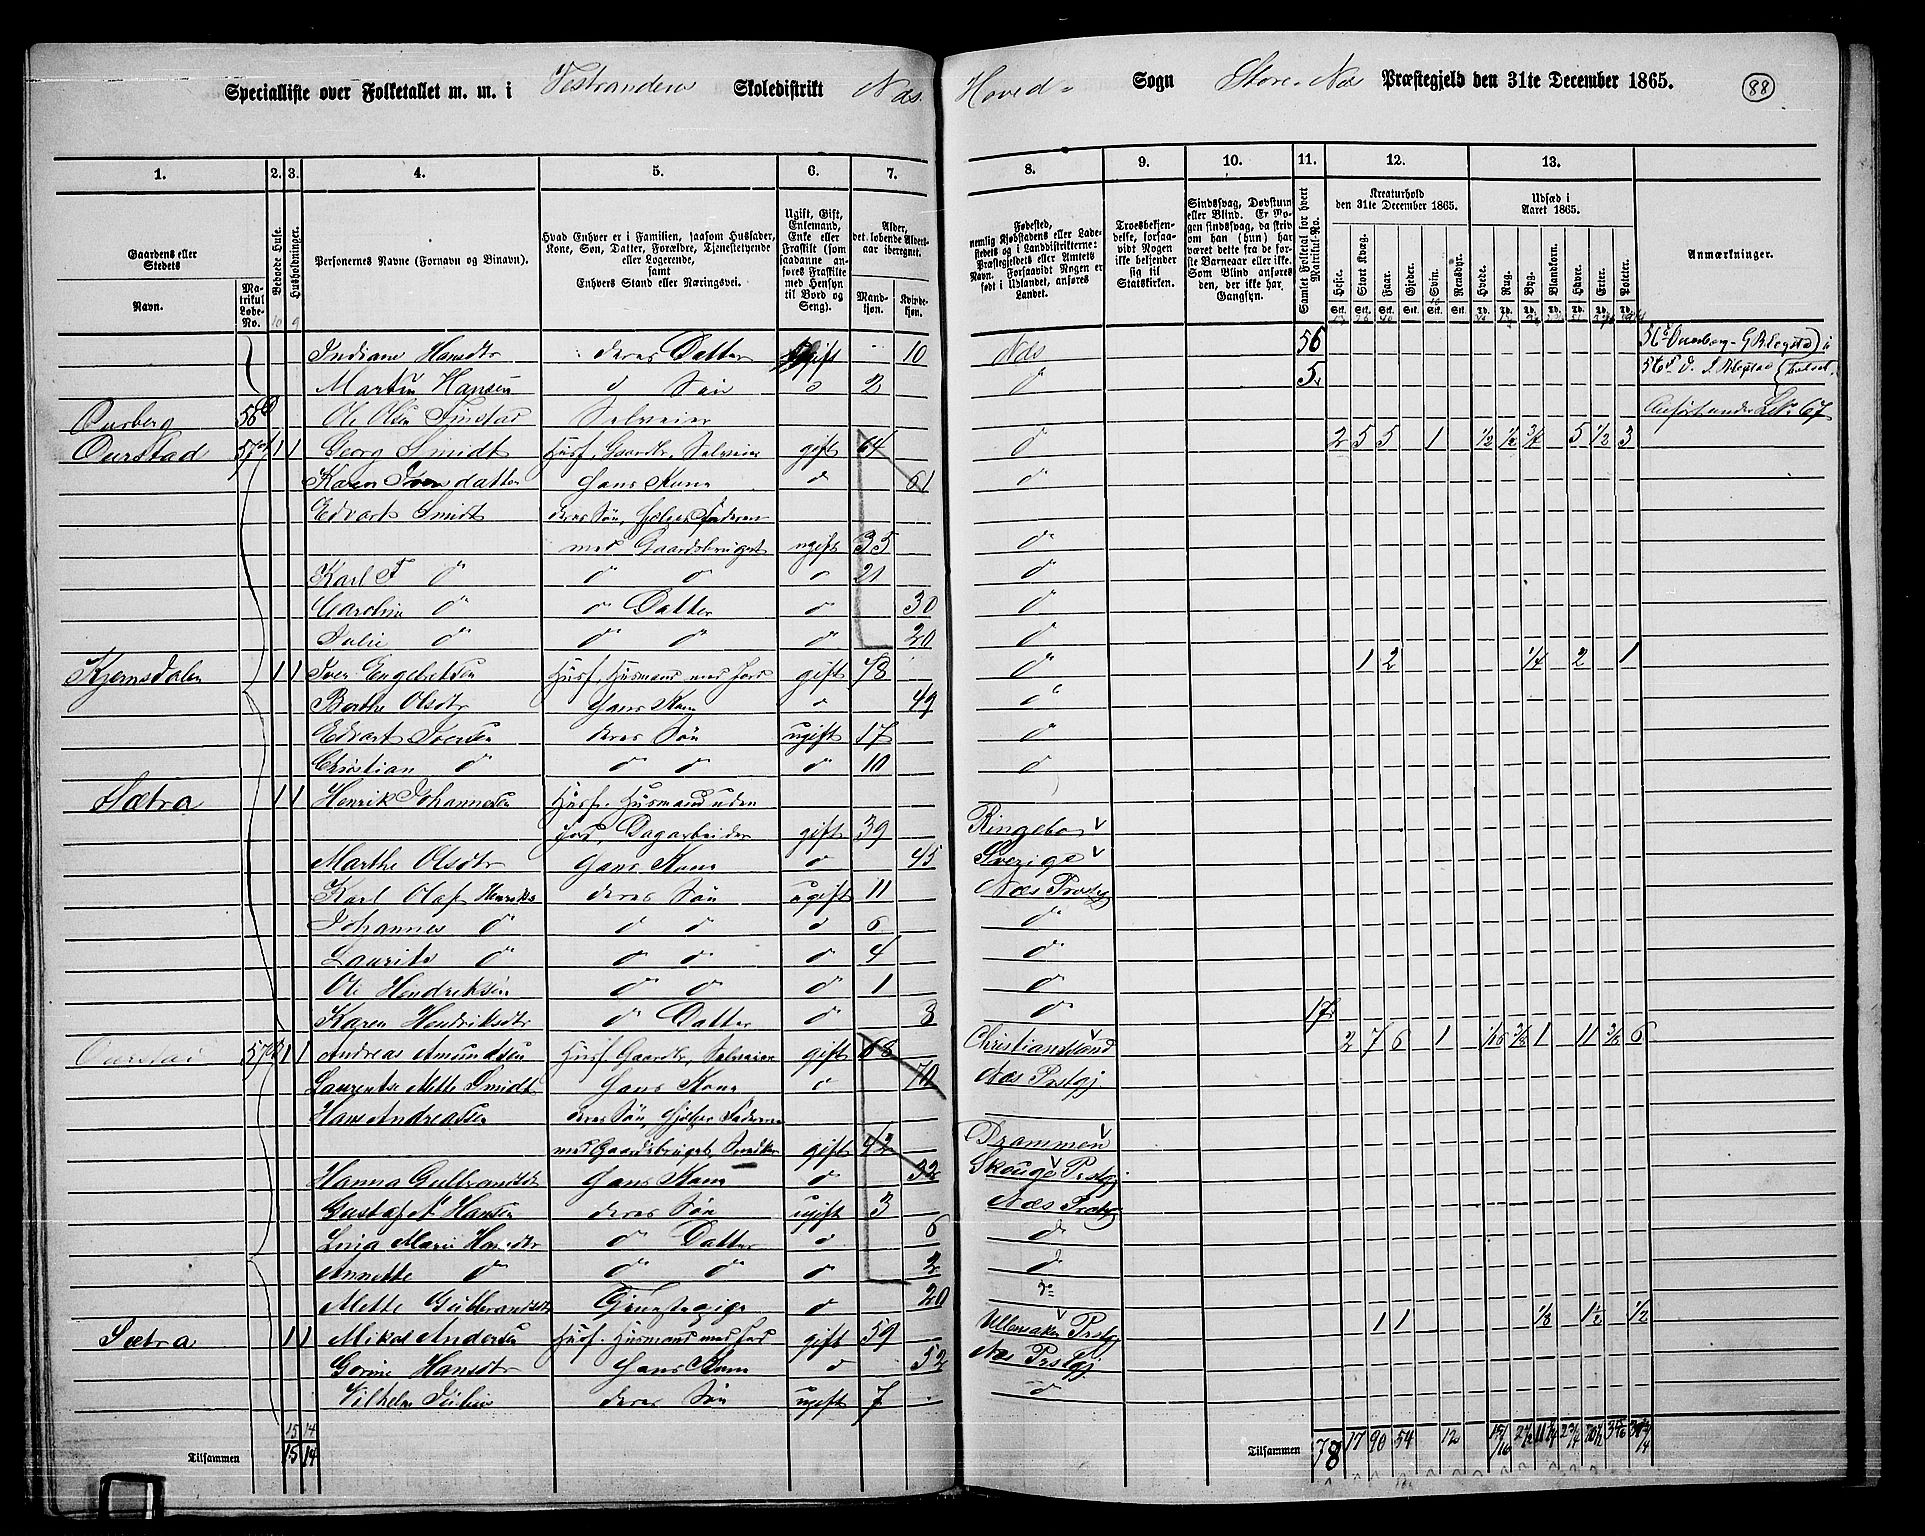 Specialliste over Folketallet m. m. i Vestrandens Skoledistrikt Næs
Hoved- Sogn Store-Næs Præstegjeld den 31te December 1865. 88
1. 2. 3. 4. 5. 6. 7.
8. 9. 10. 11. 12. 13.
Gaardens eller Stedets
Navn.
Matrikul Løbe-No.
Beboede Huse.
Husholdninger.
Personernes Navne (Fornavn og Binavn).
Hvad Enhver er i Familien, saasom Husfader, Kone, Søn, Datter, Forældre, Tjenestetyende eller Logerende,
samt
Enhvers Stand eller Næringsvei.
Ugift, Gift, Enkemand, Enke eller Fraskilt (som saadanne anføres Fraskilte med Hensyn til Bord og Seng).
Alder, det løbende Aldersaar iberegnet.
Mandkjøn. Kvindekjøn.
Fødested, nemlig Kjøbstadens eller Ladestedets og i Landdistrikterne: Præstegjeldets eller Amtets Navn. Forsaavidt Nogen er født i Udlandet, anføres Landet.
Troesbekjendelse, forsaavidt Nogen ikke bekjender sig til Statskirken.
Sindssvag, Døvstum eller Blind. Er Nogen sindssvag, da skrives om han (hun) har været dette fra de første Barneaar eller ikke. Som Blind anføres den, der ikke har Gangsyn.
Samlet Folketal for hvert Matrikul-No.
Kreaturhold den 31te December 1865.
Heste. Stort Kvæg. Faar. Gjeder. Svin. Rensdyr.
Udsæd i Aaret 1865.
Hvede. Rug. Byg. Blandkorn. Havre. Erter. Poteter.
Anmærkninger.
Indiane Hansdtr deres Datter ugift 10 Næs 56
Martin Hansen d Søn d 2 d 5
Ourberg 56 Ole Olsen Finstad Selveier Anført under Lb. 67
Ourstad 57 1 1 Georg Smidt Husf. Gaardbr. Selveier gift 64 d 2 5 5 1 1/2 1/2 3/4 5 1/2 3
Karen Iversdatter Hans Kone d 61 d
Edvart Smidt deres Søn, hjelper Faderen
med Gaardsbruget ugift 35 d
Karl F d d d d 21 d
Caroline d d Datter d 30 d
Julie d d d d 20 d
Kjernsdalen 1 1 Iver Engebretsen Husf. Husmand med Jord gift 78 d 1 2 1/4 2 1
Berthe Olsdtr Hans Kone d 49 d
Edvart Iversen deres Søn ugift 17 d
Christian d d d d 10 d
Sætra 1 1 Henrik Johannesen Husf. Husmand uden
Jord, Dagarbeider gift 39 Ringebo
Marthe Olsdtr Hans Kone d 45 Sverige
Karl Olaf Henriks deres Søn ugift 11 Næs Prstgj
Johannes d d d d 6 d
Laurits d d d d 4 d
Ole Hendriksen d d d 1 d
Karen Hendriksdtr d Datter d 8 d 17
Ourstad 57 1 1 Andreas Amundsen Husf. Gaardbr. Selveier gift 68 Christiansand 2 7 6 1 1/16 3/8 1 11 3/8 6
Laurentse Mette Smidt Hans Kone d 70 Næs Prstgj
Hans Andreassen deres Søn hjelper Faderen
med Gaardsbruget, Snedker gift 42 Drammen
Hanna Gulbrandsdtr Hans Kone d 32 Skouge Prstgj
Gustaf A Hansen deres Søn ugift 3 Næs Prstgj
Lina Marie Hansdtr d Datter d 6 d
Annette d d d d 2 d
Mette Gulbrandsdtr Tjenestepige d 20 d
Sætra 1 1 Mikal Andersen Husf. Husmand med Jord gift 59 Ullensaker Prstgj 1 1 1/8 1 1/2 1/2
Gorine Hansdtr Hans Kone d 52 Næs Prstgj
Vilhelm Julius deres Søn ugift 7 d
15 14
Tilsammen 15 14
Tilsammen 78 17 90 54 12